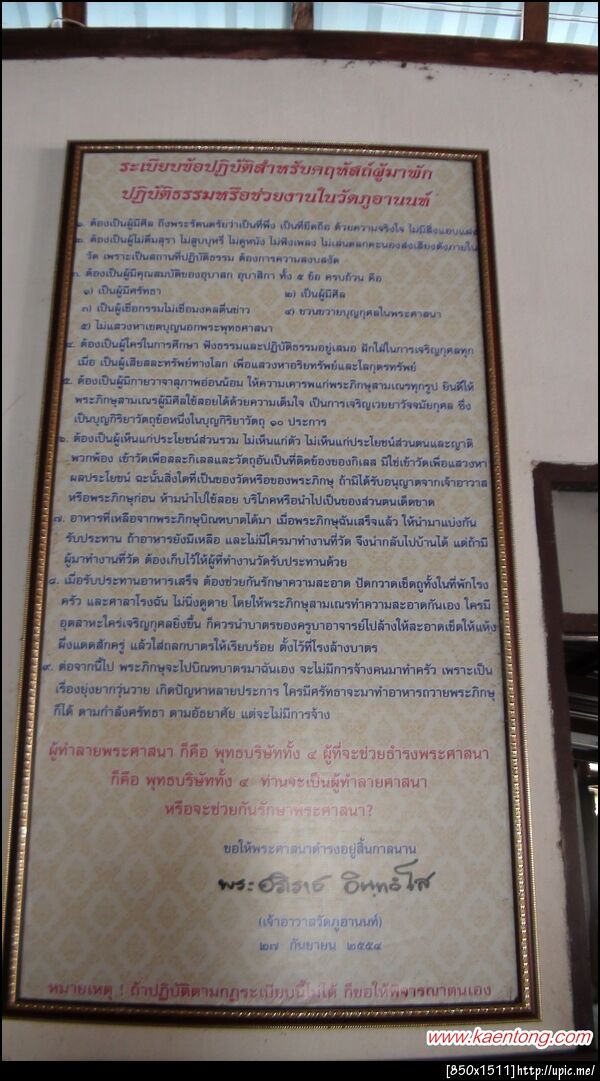 ระเบียบข้อปฏิบัติสำหรับคฤหัสถ์ผู้มาพัก
ปฏิบัติธรรมหรือช่วยงานในวัดภูอานนท์
๑. ต้องเป็นผู้มีศีล ถึงพระรัตนตรัยว่าเป็นที่พึ่ง เป็นที่ยึดถือ ด้วยความจริงใจ ไม่มีสิ่งแอบแฝง
๒. ต้องเป็นผู้ไม่ดื่มสุรา ไม่สูบบุหรี่ ไม่ดูหนัง ไม่ฟังเพลง ไม่เล่นตลกคะนองส่งเสียงดังภายใน
วัด เพราะเป็นสถานที่ปฏิบัติธรรม ต้องการความสงบสงัด
๓. ต้องเป็นผู้มีคุณสมบัติของอุบาสก อุบาสิกา ทั้ง ๕ ข้อ ครบถ้วน คือ
๑) เป็นผู้มีศรัทธา ๒) เป็นผู้มีศีล
๓) เป็นผู้เชื่อกรรมไม่เชื่อมงคลตื่นข่าว ๔) ขวนขวายบุญกุศลในพระศาสนา
๕) ไม่แสวงหาเขตบุญนอกพระพุทธศาสนา
๔. ต้องเป็นผู้ใคร่ในการศึกษา ฟังธรรมและปฏิบัติธรรมอยู่เสมอ ฝักใฝ่ในการเจริญกุศลทุก
เมื่อ เป็นผู้เสียสละทรัพย์ทางโลก เพื่อแสวงหาอริยทรัพย์และโลกุตรทรัพย์
๕. ต้องเป็นผู้มีกายวาจาสุภาพอ่อนน้อม ให้ความเคารพแก่พระภิกษุสามเณรทุกรูป ยินดีให้
พระภิกษุสามเณรผู้มีศีลใช้สอยได้ด้วยความเต็มใจ เป็นการเจริญเวยยาวัจจมัยกุศล ซึ่ง
เป็นบุญกิริยาวัตถุข้อหนึ่งในบุญกิริยาวัตถุ ๑๐ ประการ
๖. ต้องเป็นผู้เห็นแก่ประโยชน์ส่วนรวม ไม่เห็นแก่ตัว ไม่เห็นแก่ประโยชน์ส่วนตนและญาติ
พวกพ้อง เข้าวัดเพื่อสละกิเลสและวัตถุอันเป็นที่ติดข้องของกิเลส มิใช่เข้าวัดเพื่อแสวงหา
ผลประโยชน์ ฉะนั้นสิ่งใดที่เป็นของวัดหรือของพระภิกษุ ถ้ามิได้รับอนุญาตจากเจ้าอาวาส
หรือพระภิกษุก่อน ห้ามนำไปใช้สอย บริโภคหรือนำไปเป็นของส่วนตนเด็ดขาด
๗. อาหารที่เหลือจากพระภิกษุบิณฑบาตได้มา เมื่อพระภิกษุฉันเสร็จแล้ว ให้นำมาแบ่งกัน
รับประทาน ถ้าอาหารยังมีเหลือ และไม่มีใครมาทำงานที่วัด จึงนำกลับไปบ้านได้ แต่ถ้ามี
ผู้มาทำงานที่วัด ต้องเก็บไว้ให้ผู้ที่ทำงานวัดรับประทานด้วย
๘. เมื่อรับประทานอาหารเสร็จ ต้องช่วยกันรักษาความสะอาด ปัดกวาดเช็ดถูทั้งในที่พักโรง
ครัว และศาลาโรงฉัน ไม่นิ่งดูดาย โดยให้พระภิกษุสามเณรทำความสะอาดกันเอง ใครมี
อุตสาหะใคร่เจริญกุศลยิ่งขึ้น ก็ควรนำบาตรของครูบาอาจารย์ไปล้างให้สะอาดเช็ดให้แห้ง
ผึ่งแดดสักครู่ แล้วใส่ถลกบาตรให้เรียบร้อย ตั้งไว้ที่โรงล้างบาตร
๙. ต่อจากนี้ไป พระภิกษุจะไปบิณฑบาตรมาฉันเอง จะไม่มีการจ้างคนมาทำครัว เพราะเป็น
เรื่องยุ่งยากวุ่นวาย เกิดปัญหาหลายประการ ใครมีศรัทธาจะมาทำอาหารถวายพระภิกษุ
ก็ได้ ตามกำลังศรัทธา ตามอัธยาศัย แต่จะไม่มีการจ้าง
ผู้ทำลายพระศาสนา ก็คือ พุทธบริษัททั้ง ๔ ผู้ที่จะช่วยธำรงพระศาสนา
ก็คือ พุทธบริษัททั้ง ๔ ท่านจะเป็นผู้ทำลายศาสนา
หรือจะช่วยกันรักษาพระศาสนา?
ขอให้พระศาสนาดำรงอยู่สิ้นกาลนาน
พระอภิราช อินฺทวํโส
(เจ้าอาวาสวัดภูอานนท์)
๒๗ กันยายน ๒๕๕๔
หมายเหตุ ! ถ้าปฏิบัติตามกฎระเบียบนี้ไม่ได้ ก็ขอให้พิจารณาตนเอง
www.kaentong.com
[850x1511]http://upic.me/